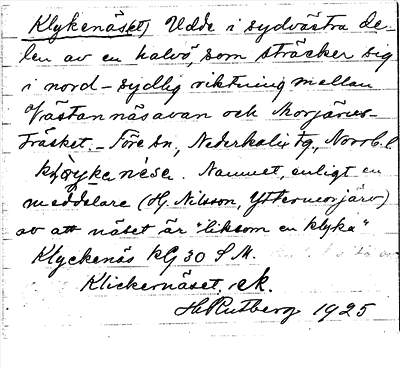 Klykenäs(et) Udde i sydvästra de-
len av en halvö, som sträcker sig
i nord-sydlig riktning mellan
Västannäsavan och Morjärvs-
träsket. - Töre sn, Nederkalix tg, Norrb. l.
Namnet, enligt en
meddelare (H. Nilsson, Yttermorjärv)
av att näset är "liksom en klyka"
Klyckenäs kG 30 S M.
Klickernäset. ek.
H Rutberg 1925